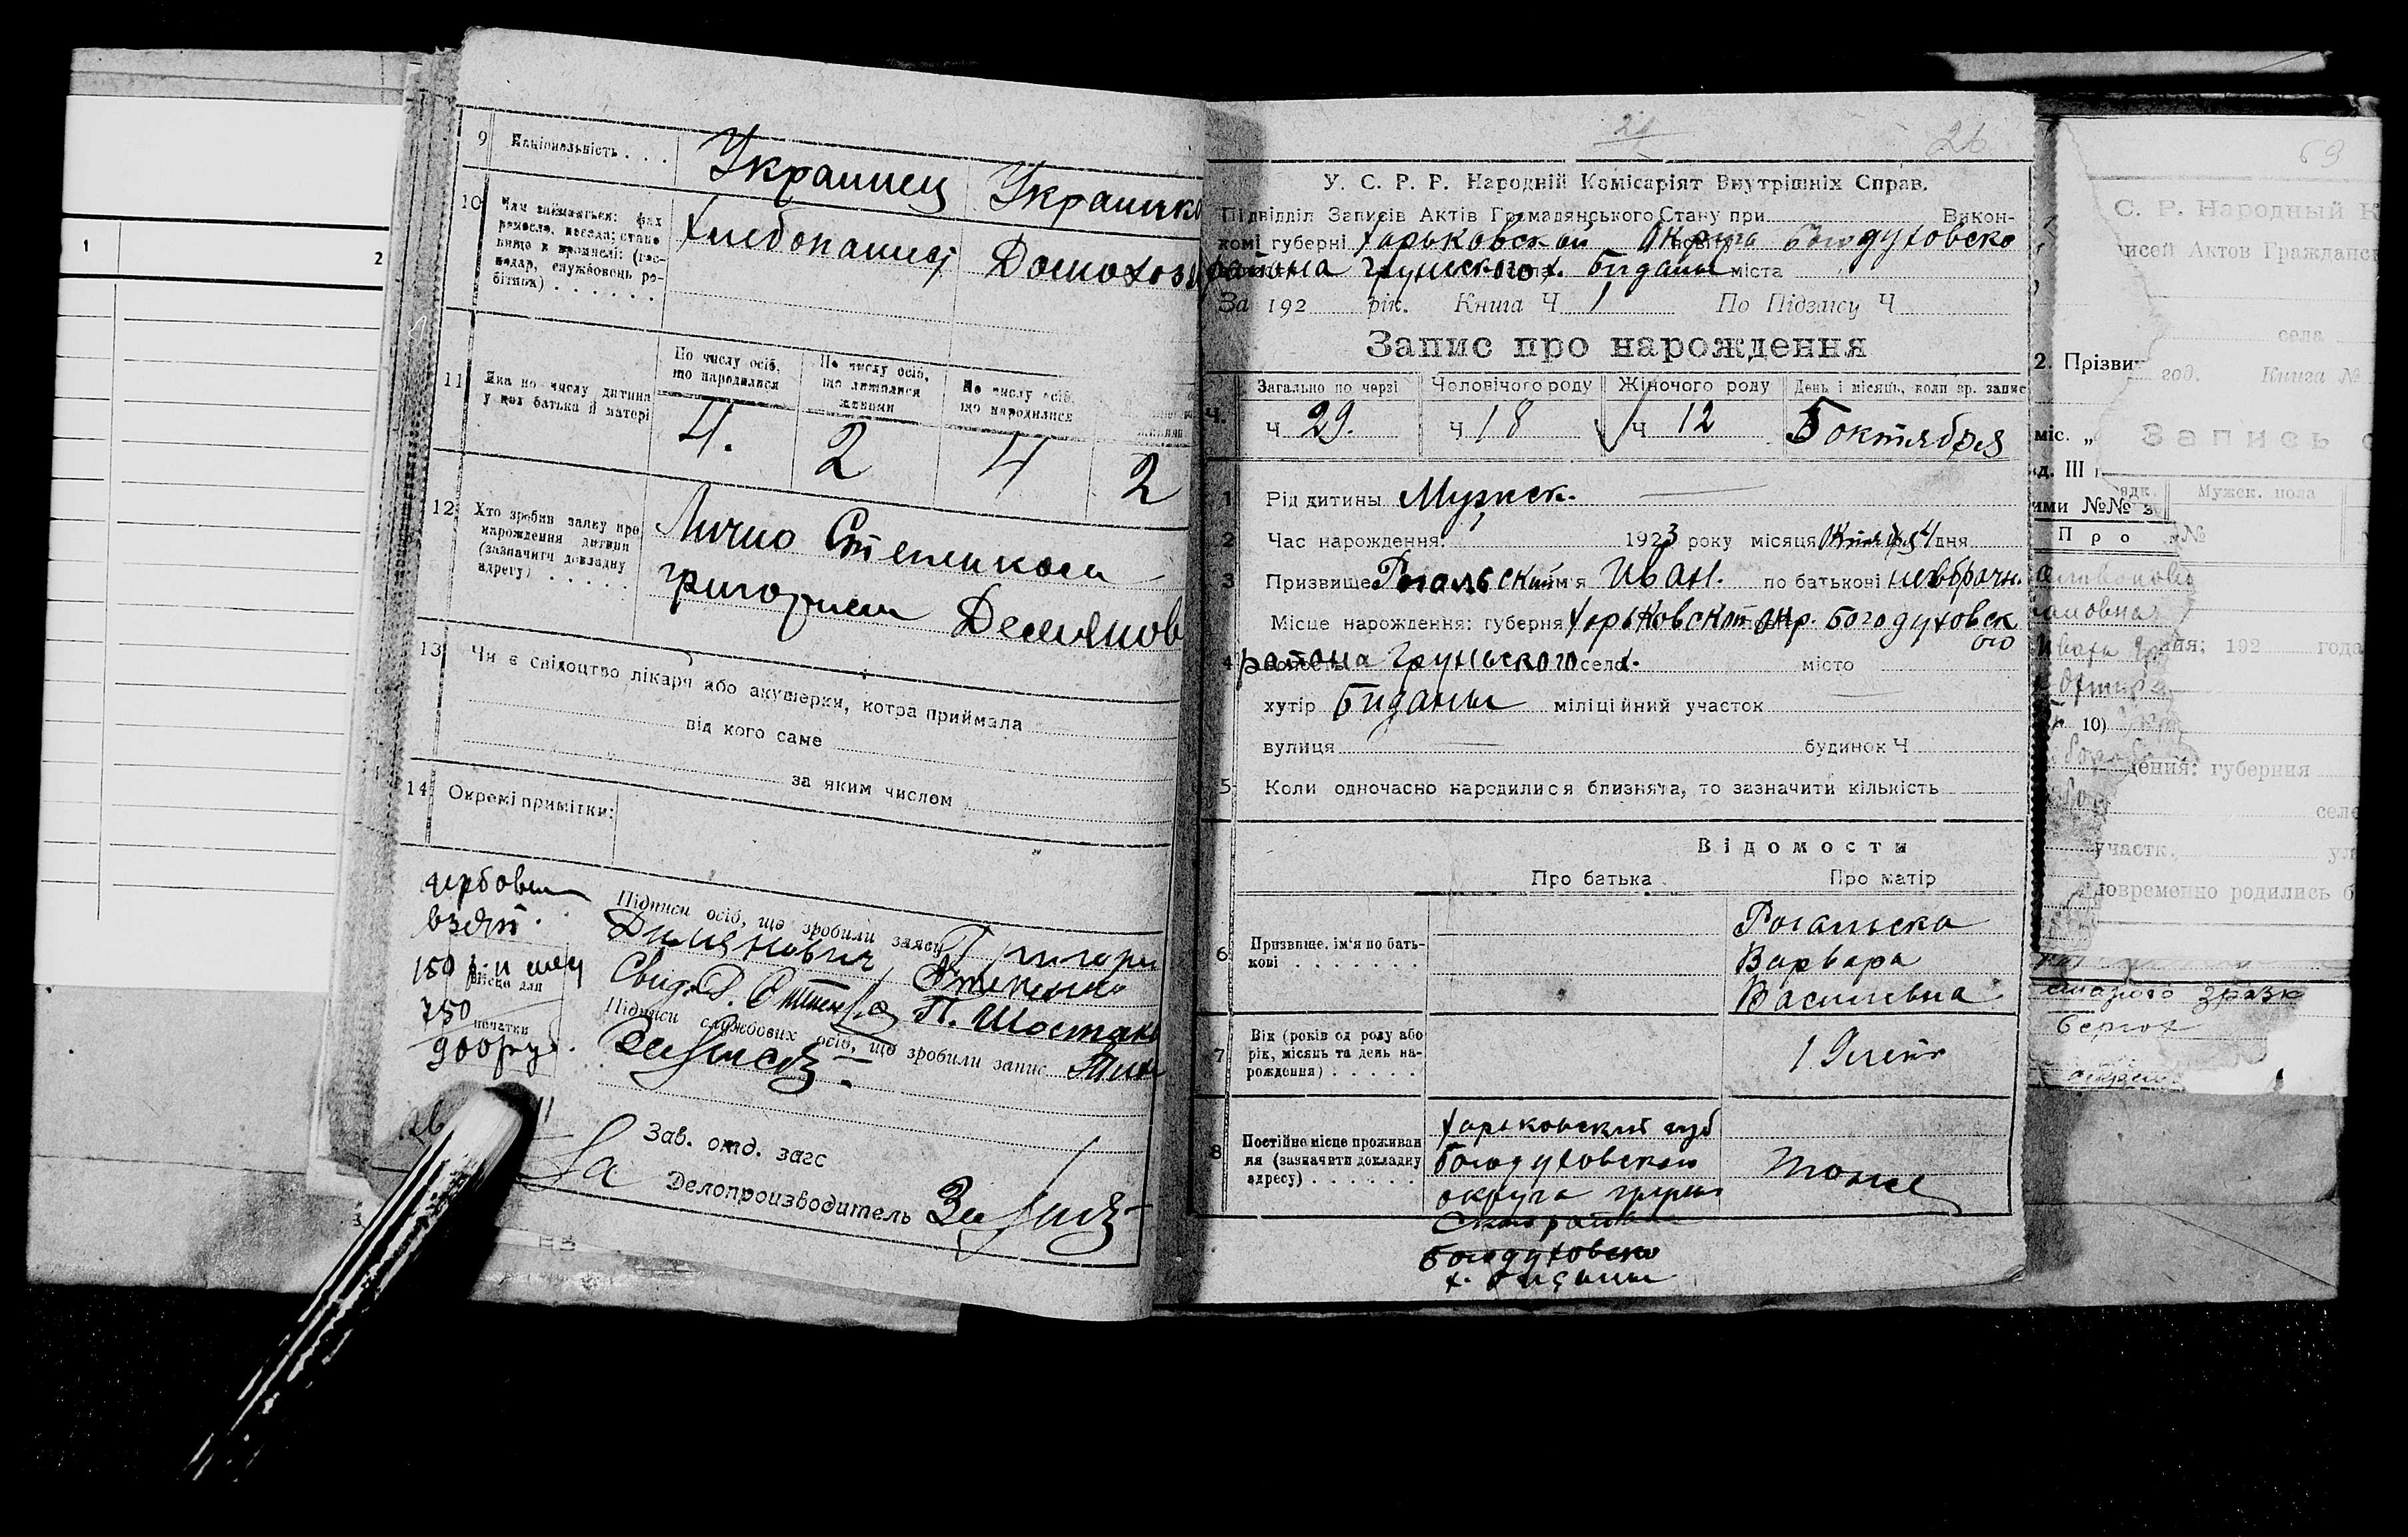 1
2
9 Національність . . . Украинец Украинка
10 Чим займається: фах
ремесло, посада; стано
вище в промислі: (гос-
подар, службовець ро-
бітник) . . . . . .
Хлебопашец
Домохоз
11 Яка по числу дитина
у цих батька й матері
По числу осіб,
що народилися
По числу осіб,
що лишилися
живими
По числу осіб,
що народилися
живими
4. 2 4 2
12 Хто зробив заяву про
нарождення дитини
(зазначити докладну
адресу) . . . . .
Лично Степенком
Григорием Демянов
13 Чи є свідоцтво лікаря або акушерки, котра приймала
від кого саме
за яким числом
14 Окремі примітки:
Підписи осіб, що зробили заяву
гербовый
взят.
150 р.
Місце для
750
печатки
900 руб.
П. Шостак
Підписи службових осіб, що зробили запис
Зав. отд. загс
Делопроизводитель
24
26
У. С. Р. Р. Народній Комісаріят Внутрішніх Справ.
Підвідділ Записів Актів Громадянського Стану при Викон-
комі губерні Харьковской Округа Богодуховско
района Грунського х. Бидани міста
За 192 рік. Книга Ч 1 По Підзапсу Ч
Запис про нарождення
Загально по черзі Чоловічого роду Жіночого роду День і місяць, коли зр. запис
Ч. Ч 29. Ч 18 Ч 12 5 октября
1 Рід дитини Мужск.
2 Час нарождення: 1923 року місяця Октября 4 дня
3 Призвище Рогальский Ім'я Иван. по батькові невбрачн.
4 Місце нарождення: губерня Харьковской окр. Богодуховск
ого
района Груньского село х. місто
хутір Бидани міліційний участок
вулиця будинок Ч
5 Коли одночасно народилися близнята, то зазначити кількість
Відомости
Про батька Про матір
6 Призвище, ім'я по бать-
кові . . . . . . .
Рогальска
Варвара
Васильевна
7 Вік (років од роду або
рік, місяць та день на-
рождення) . . . . .
19 лет
8 Постійне місце проживан
ня (зазначити докладну
адресу) . . . . . .
Харьковский губ
Богодуховского
округа
Богодуховско
х. Бидани
тоже
69
С. Р. Народный К
исей Актов Гражданск
села
2. Прізви
год. Книга №
міс. „
Запись о
од. III
Мужск. пола
ими №№ з
Про
№
ния; 192 года
10)
дения: губерния
село
участк. ул
довременно родились б
старого зразк